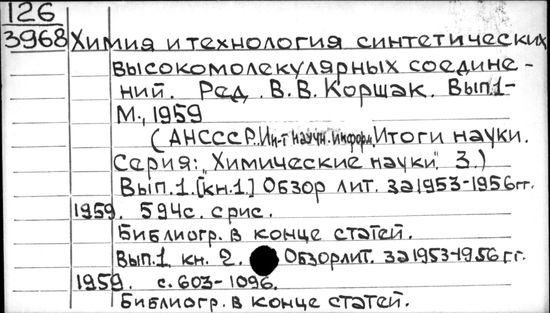 126
3968 Химия и технология синтетических
высокомолекулярных соедине-
ний. Ред. В.В. Коршак. Вып.1-
М., 1959
(АНСССР. Ин-т научн. информ. Итоги науки.
Серия: "Химические науки", 3.)
Вып.1. [кн.1.] Обзор лит. за 1953-1956гг.
1959. 594с. с рис.
Библиогр. в конце статей.
Вып.1 кн. 2. Обзор лит. за 1953-1956 г.г.
1959. с. 603-1096.
Библиогр. в конце статей.